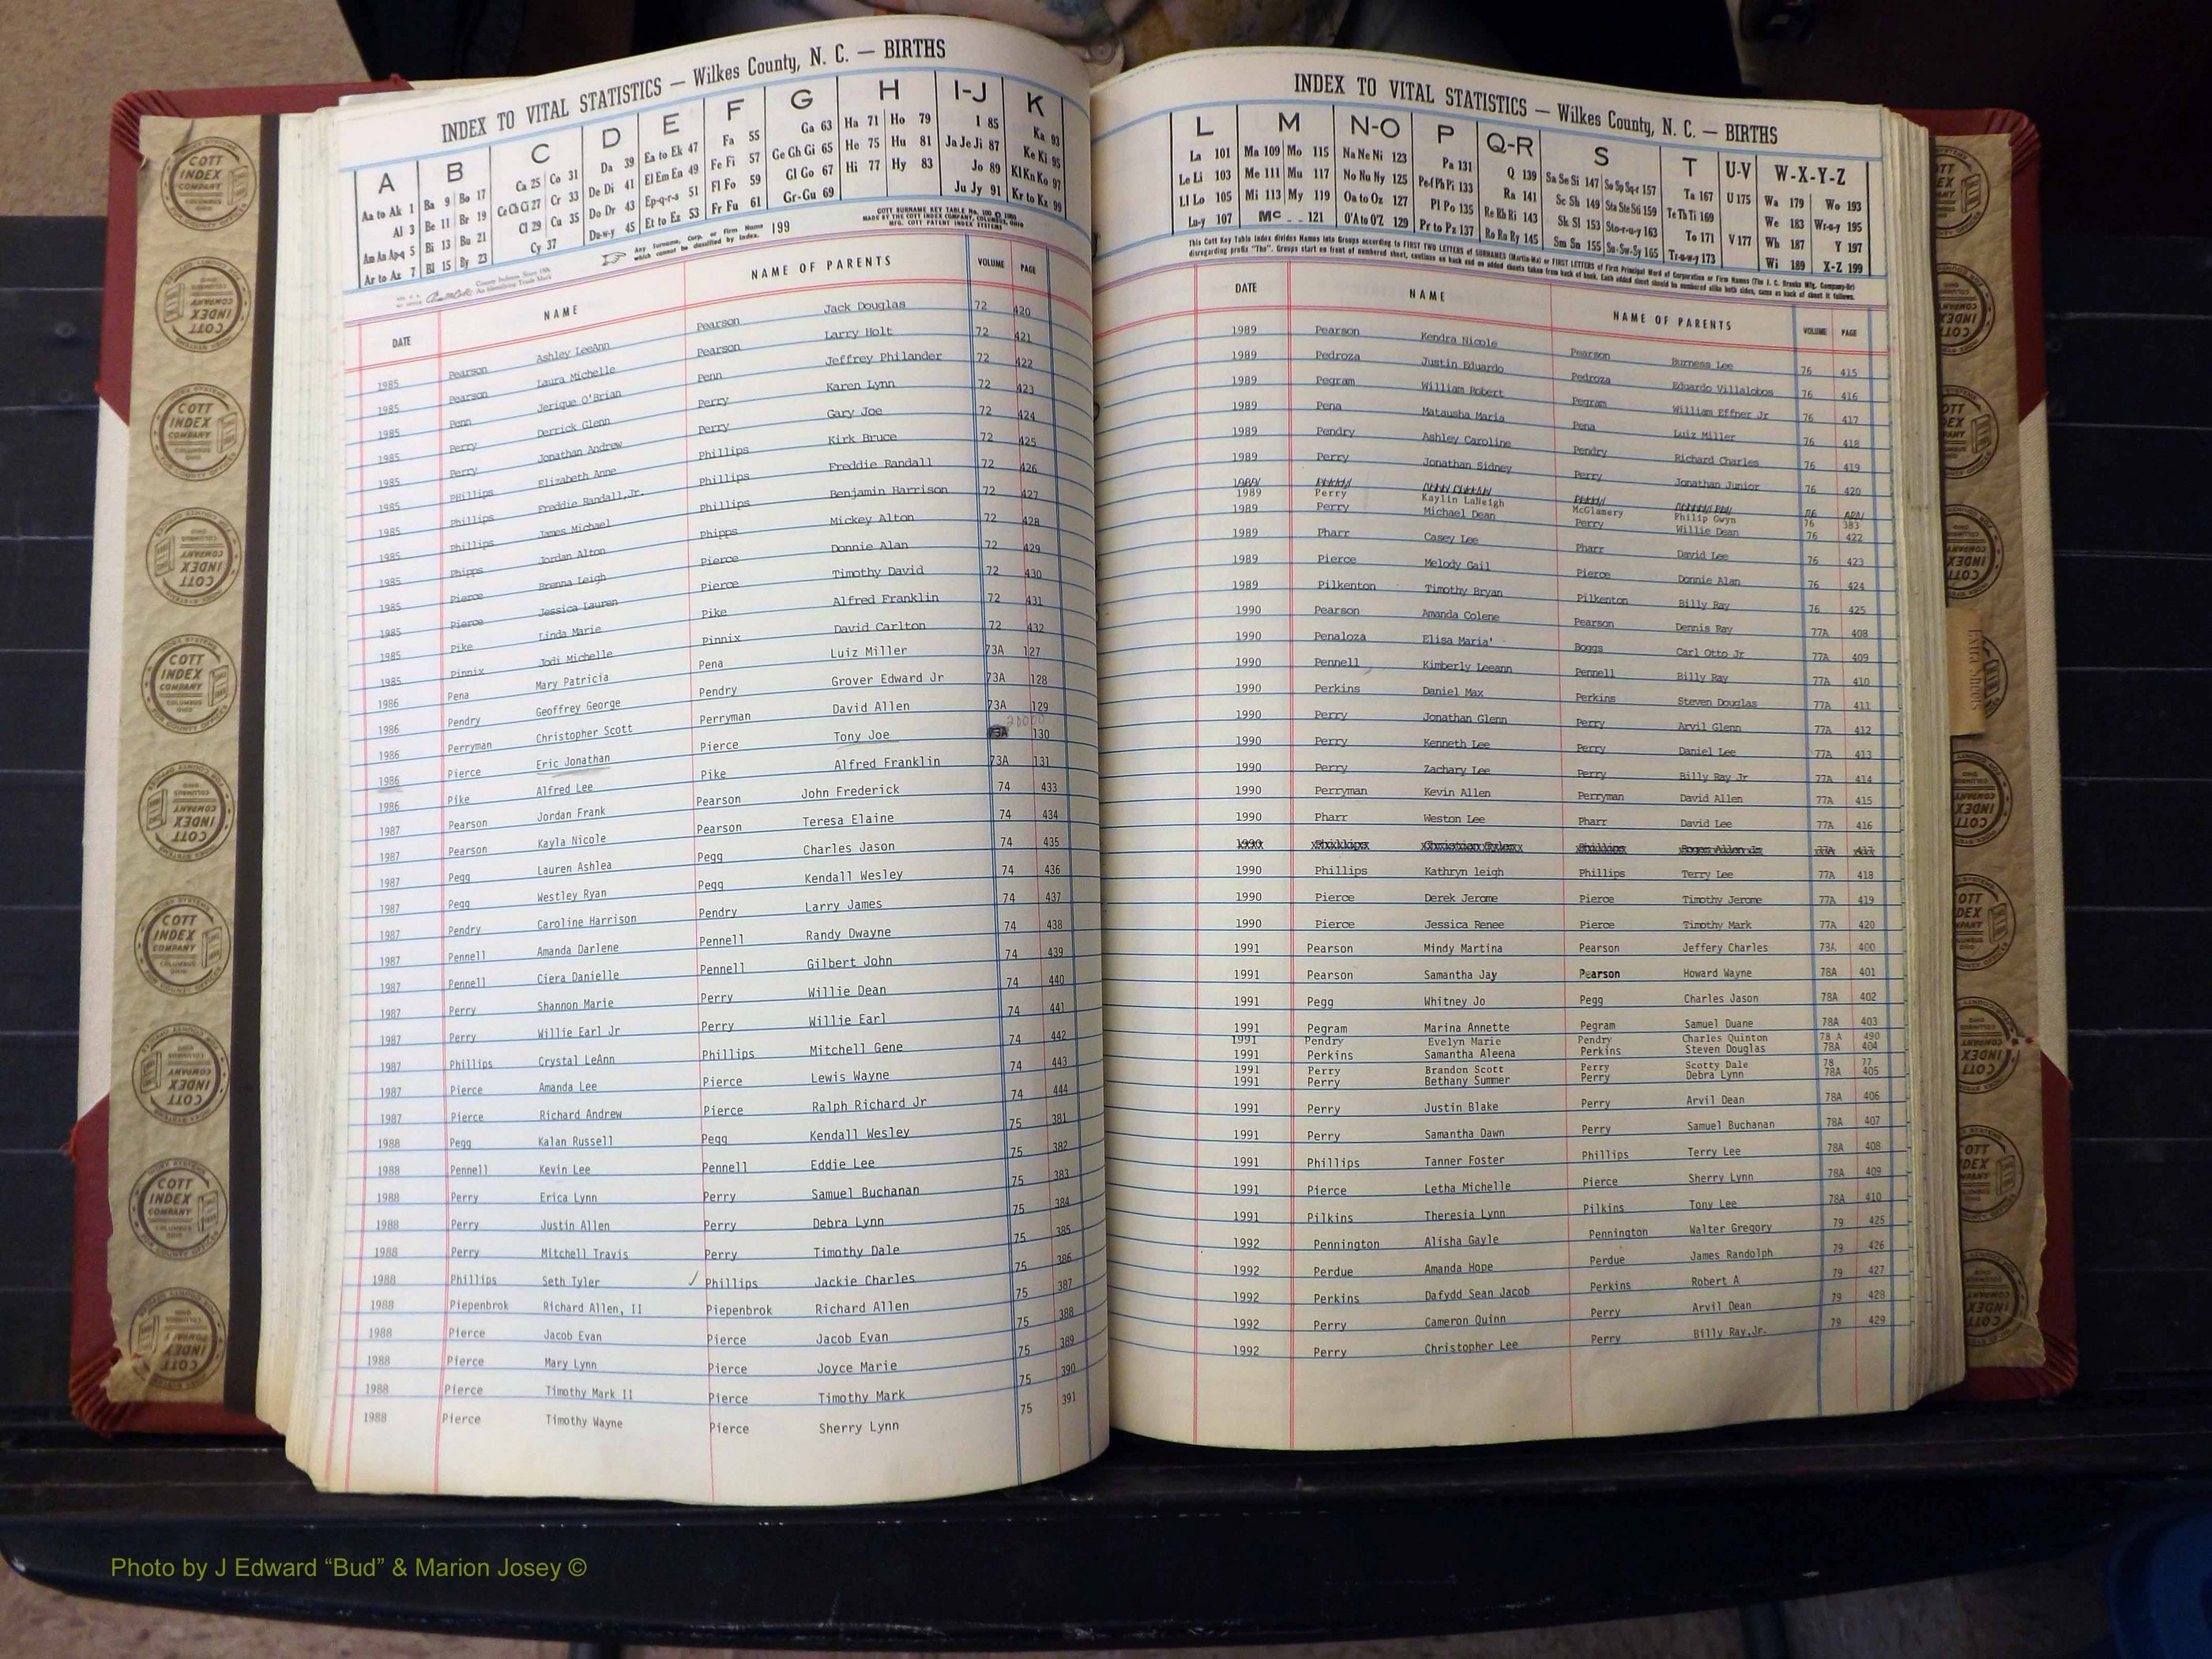 INDEX TO VITAL STATISTICS — Wilkes County, N. C. — BIRTHS
A B C D E F G H I-J K
Aa to Ak 1 Ba 9 Bo 17 Ca 25 Co 31 Da 39 Ea to Ek 47 Fa 55 Ga 63 Ha 71 Ho 79 I 85 Ka 93
Al 3 Be 11 Br 19 Ce Ch Ci 27 Cr 33 De Di 41 El Em En 49 Fe Fi 57 Ge Gh Gi 65 He 75 Hu 81 Ja Je Ji 87 Ke Ki 95
Am An Ap-q 5 Bi 13 Bu 21 Cl 29 Cu 35 Do Dr 43 Ep-q-r-s 51 Fl Fo 59 Gl Go 67 Hi 77 Hy 83 Jo 89 Kl Kn Ko 97
Ar to Az 7 Bl 15 By 23 Cy 37 Du-w-y 45 Et to Ez 53 Fr Fu 61 Gr-Gu 69 Ju Jy 91 Kr to Kz 99
Any Surname, Corp. or Firm Name which cannot be classified by index. 199
COTT SURNAME KEY TABLE No.
MADE BY THE COTT INDEX COMPANY, COLUMBUS, OHIO
MFG. COTT PATENT INDEX SYSTEMS
DATE NAME NAME OF PARENTS VOLUME PAGE
1985 Pearson Ashley LeeAnn Pearson Jack Douglas 72 420
1985 Pearson Laura Michelle Pearson Larry Holt 72 421
1985 Penn Jerique O'Brian Penn Jeffrey Philander 72 422
1985 Perry Derrick Glenn Perry Karen Lynn 72 423
1985 Perry Jonathan Andrew Perry Gary Joe 72 424
1985 Phillips Elizabeth Anne Phillips Kirk Bruce 72 425
1985 Phillips Freddie Randall,Jr. Phillips Freddie Randall 72 426
1985 Phillips James Michael Phillips Benjamin Harrison 72 427
1985 Phipps Jordan Alton Phipps Mickey Alton 72 428
1985 Pierce Brenna Leigh Pierce Donnie Alan 72 429
1985 Pierce Jessica Lauren Pierce Timothy David 72 430
1985 Pike Linda Marie Pike Alfred Franklin 72 431
1985 Pinnix Jodi Michelle Pinnix David Carlton 72 432
1986 Pena Mary Patricia Pena Luiz Miller 73A 127
1986 Pendry Geoffrey George Pendry Grover Edward Jr 73A 128
1986 Perryman Christopher Scott Perryman David Allen 73A 129
1986 Pierce Eric Jonathan Pierce Tony Joe 73A 130
1986 Pike Alfred Lee Pike Alfred Franklin 73A 131
1987 Pearson Jordan Frank Pearson John Frederick 74 433
1987 Pearson Kayla Nicole Pearson Teresa Elaine 74 434
1987 Pegg Lauren Ashlea Pegg Charles Jason 74 435
1987 Pegg Westley Ryan Pegg Kendall Wesley 74 436
1987 Pendry Caroline Harrison Pendry Larry James 74 437
1987 Pennell Amanda Darlene Pennell Randy Dwayne 74 438
1987 Pennell Ciera Danielle Pennell Gilbert John 74 439
1987 Perry Shannon Marie Perry Willie Dean 74 440
1987 Perry Willie Earl Jr Perry Willie Earl 74 441
1987 Phillips Crystal LeAnn Phillips Mitchell Gene 74 442
1987 Pierce Amanda Lee Pierce Lewis Wayne 74 443
1987 Pierce Richard Andrew Pierce Ralph Richard Jr 74 444
1988 Pegg Kalan Russell Pegg Kendall Wesley 75 381
1988 Pennell Kevin Lee Pennell Eddie Lee 75 382
1988 Perry Erica Lynn Perry Samuel Buchanan 75 383
1988 Perry Justin Allen Perry Debra Lynn 75 384
1988 Perry Mitchell Travis Perry Timothy Dale 75 385
1988 Phillips Seth Tyler ✓ Phillips Jackie Charles 75 386
1988 Piepenbrok Richard Allen, II Piepenbrok Richard Allen 75 387
1988 Pierce Jacob Evan Pierce Jacob Evan 75 388
1988 Pierce Mary Lynn Pierce Joyce Marie 75 389
1988 Pierce Timothy Mark II Pierce Timothy Mark 75 390
1988 Pierce Timothy Wayne Pierce Sherry Lynn 75 391
INDEX TO VITAL STATISTICS — Wilkes County, N. C. — BIRTHS
L M N-O P Q-R S T U-V W-X-Y-Z
La 101 Ma 109 Mo 115 Na Ne Ni 123 Pa 131 Q 139 Sa Se Si 147 So Sp Sq-r 157 Ta 167 U 175 Wa 179 Wo 193
Le Li 103 Me 111 Mu 117 No Nu Ny 125 Pe-f Ph Pi 133 Ra 141 Sc Sh 149 Sta Ste Sti 159 Te Th Ti 169 We 183 Wr-u-y 195
Ll Lo 105 Mi 113 My 119 Oa to Oz 127 Pl Po 135 Re Rh Ri 143 Sk Sl 153 Sto-r-u-y 163 To 171 V 177 Wh 187 Y 197
Lu-y 107 Mc 121 O'A to O'Z 129 Pr to Pz 137 Ro Ru Ry 145 Sm Sn 155 Su-Sw-Sy 165 Tr-u-w-y 173 Wi 189 X-Z 199
This Cott Key Table Index divides Names into Groups according to FIRST TWO LETTERS of SURNAMES (Martin-Ma) or FIRST LETTERS of First Principal Word of Corporation or Firm Names (The J. C. Branks Mfg. Company-Br)
disregarding prefix "The". Groups start on front of numbered sheet, continue on back and on added sheets taken from back of book. Each added sheet should be numbered alike both sides, same as back of sheet it follows.
DATE NAME NAME OF PARENTS VOLUME PAGE
1989 Pearson Kendra Nicole Pearson Burness Lee 76 415
1989 Pedroza Justin Eduardo Pedroza Eduardo Villalobos 76 416
1989 Pegram William Robert Pegram William Effner Jr 76 417
1989 Pena Matausha Maria Pena Luiz Miller 76 418
1989 Pendry Ashley Caroline Pendry Richard Charles 76 419
1989 Perry Jonathan Sidney Perry Jonathan Junior 76 420
1989 Perry Kaylin LaNeigh McGlamery Philip Gwyn 76 383
1989 Perry Michael Dean Perry Willie Dean 76 422
1989 Pharr Casey Lee Pharr David Lee 76 423
1989 Pierce Melody Gail Pierce Donnie Alan 76 424
1989 Pilkenton Timothy Bryan Pilkenton Billy Ray 76 425
1990 Pearson Amanda Colene Pearson Dennis Ray 77A 408
1990 Penaloza Elisa Maria' Boggs Carl Otto Jr 77A 409
1990 Pennell Kimberly Leeann Pennell Billy Ray 77A 410
1990 Perkins Daniel Max Perkins Steven Douglas 77A 411
1990 Perry Jonathan Glenn Perry Arvil Glenn 77A 412
1990 Perry Kenneth Lee Perry Daniel Lee 77A 413
1990 Perry Zachary Lee Perry Billy Ray Jr 77A 414
1990 Perryman Kevin Allen Perryman David Allen 77A 415
1990 Pharr Weston Lee Pharr David Lee 77A 416
1990 Phillips Phillips Roger Allen Jr 77A 417
1990 Phillips Kathryn leigh Phillips Terry Lee 77A 418
1990 Pierce Derek Jerome Pierce Timothy Jerome 77A 419
1990 Pierce Jessica Renee Pierce Timothy Mark 77A 420
1991 Pearson Mindy Martina Pearson Jeffery Charles 400
1991 Pearson Samantha Jay Pearson Howard Wayne 78A 401
1991 Pegg Whitney Jo Pegg Charles Jason 78A 402
1991 Pegram Marina Annette Pegram Samuel Duane 78A 403
1991 Pendry Evelyn Marie Pendry Charles Quinton 78 A 490
1991 Perkins Samantha Aleena Perkins Steven Douglas 78A 404
1991 Perry Brandon Scott Perry Scotty Dale 78 77
1991 Perry Bethany Summer Perry Debra Lynn 78A 405
1991 Perry Justin Blake Perry Arvil Dean 78A 406
1991 Perry Samantha Dawn Perry Samuel Buchanan 78A 407
1991 Phillips Tanner Foster Phillips Terry Lee 78A 408
1991 Pierce Letha Michelle Pierce Sherry Lynn 78A 409
1991 Pilkins Theresia Lynn Pilkins Tony Lee 78A 410
1992 Pennington Alisha Gayle Pennington Walter Gregory 79 425
1992 Perdue Amanda Hope Perdue James Randolph 79 426
1992 Perkins Dafydd Sean Jacob Perkins Robert A 79 427
1992 Perry Cameron Quinn Perry Arvil Dean 79 428
1992 Perry Christopher Lee Perry Billy Ray,Jr. 79 429
COTT INDEX COMPANY COLUMBUS OHIO
Photo by J Edward “Bud” & Marion Josey ©